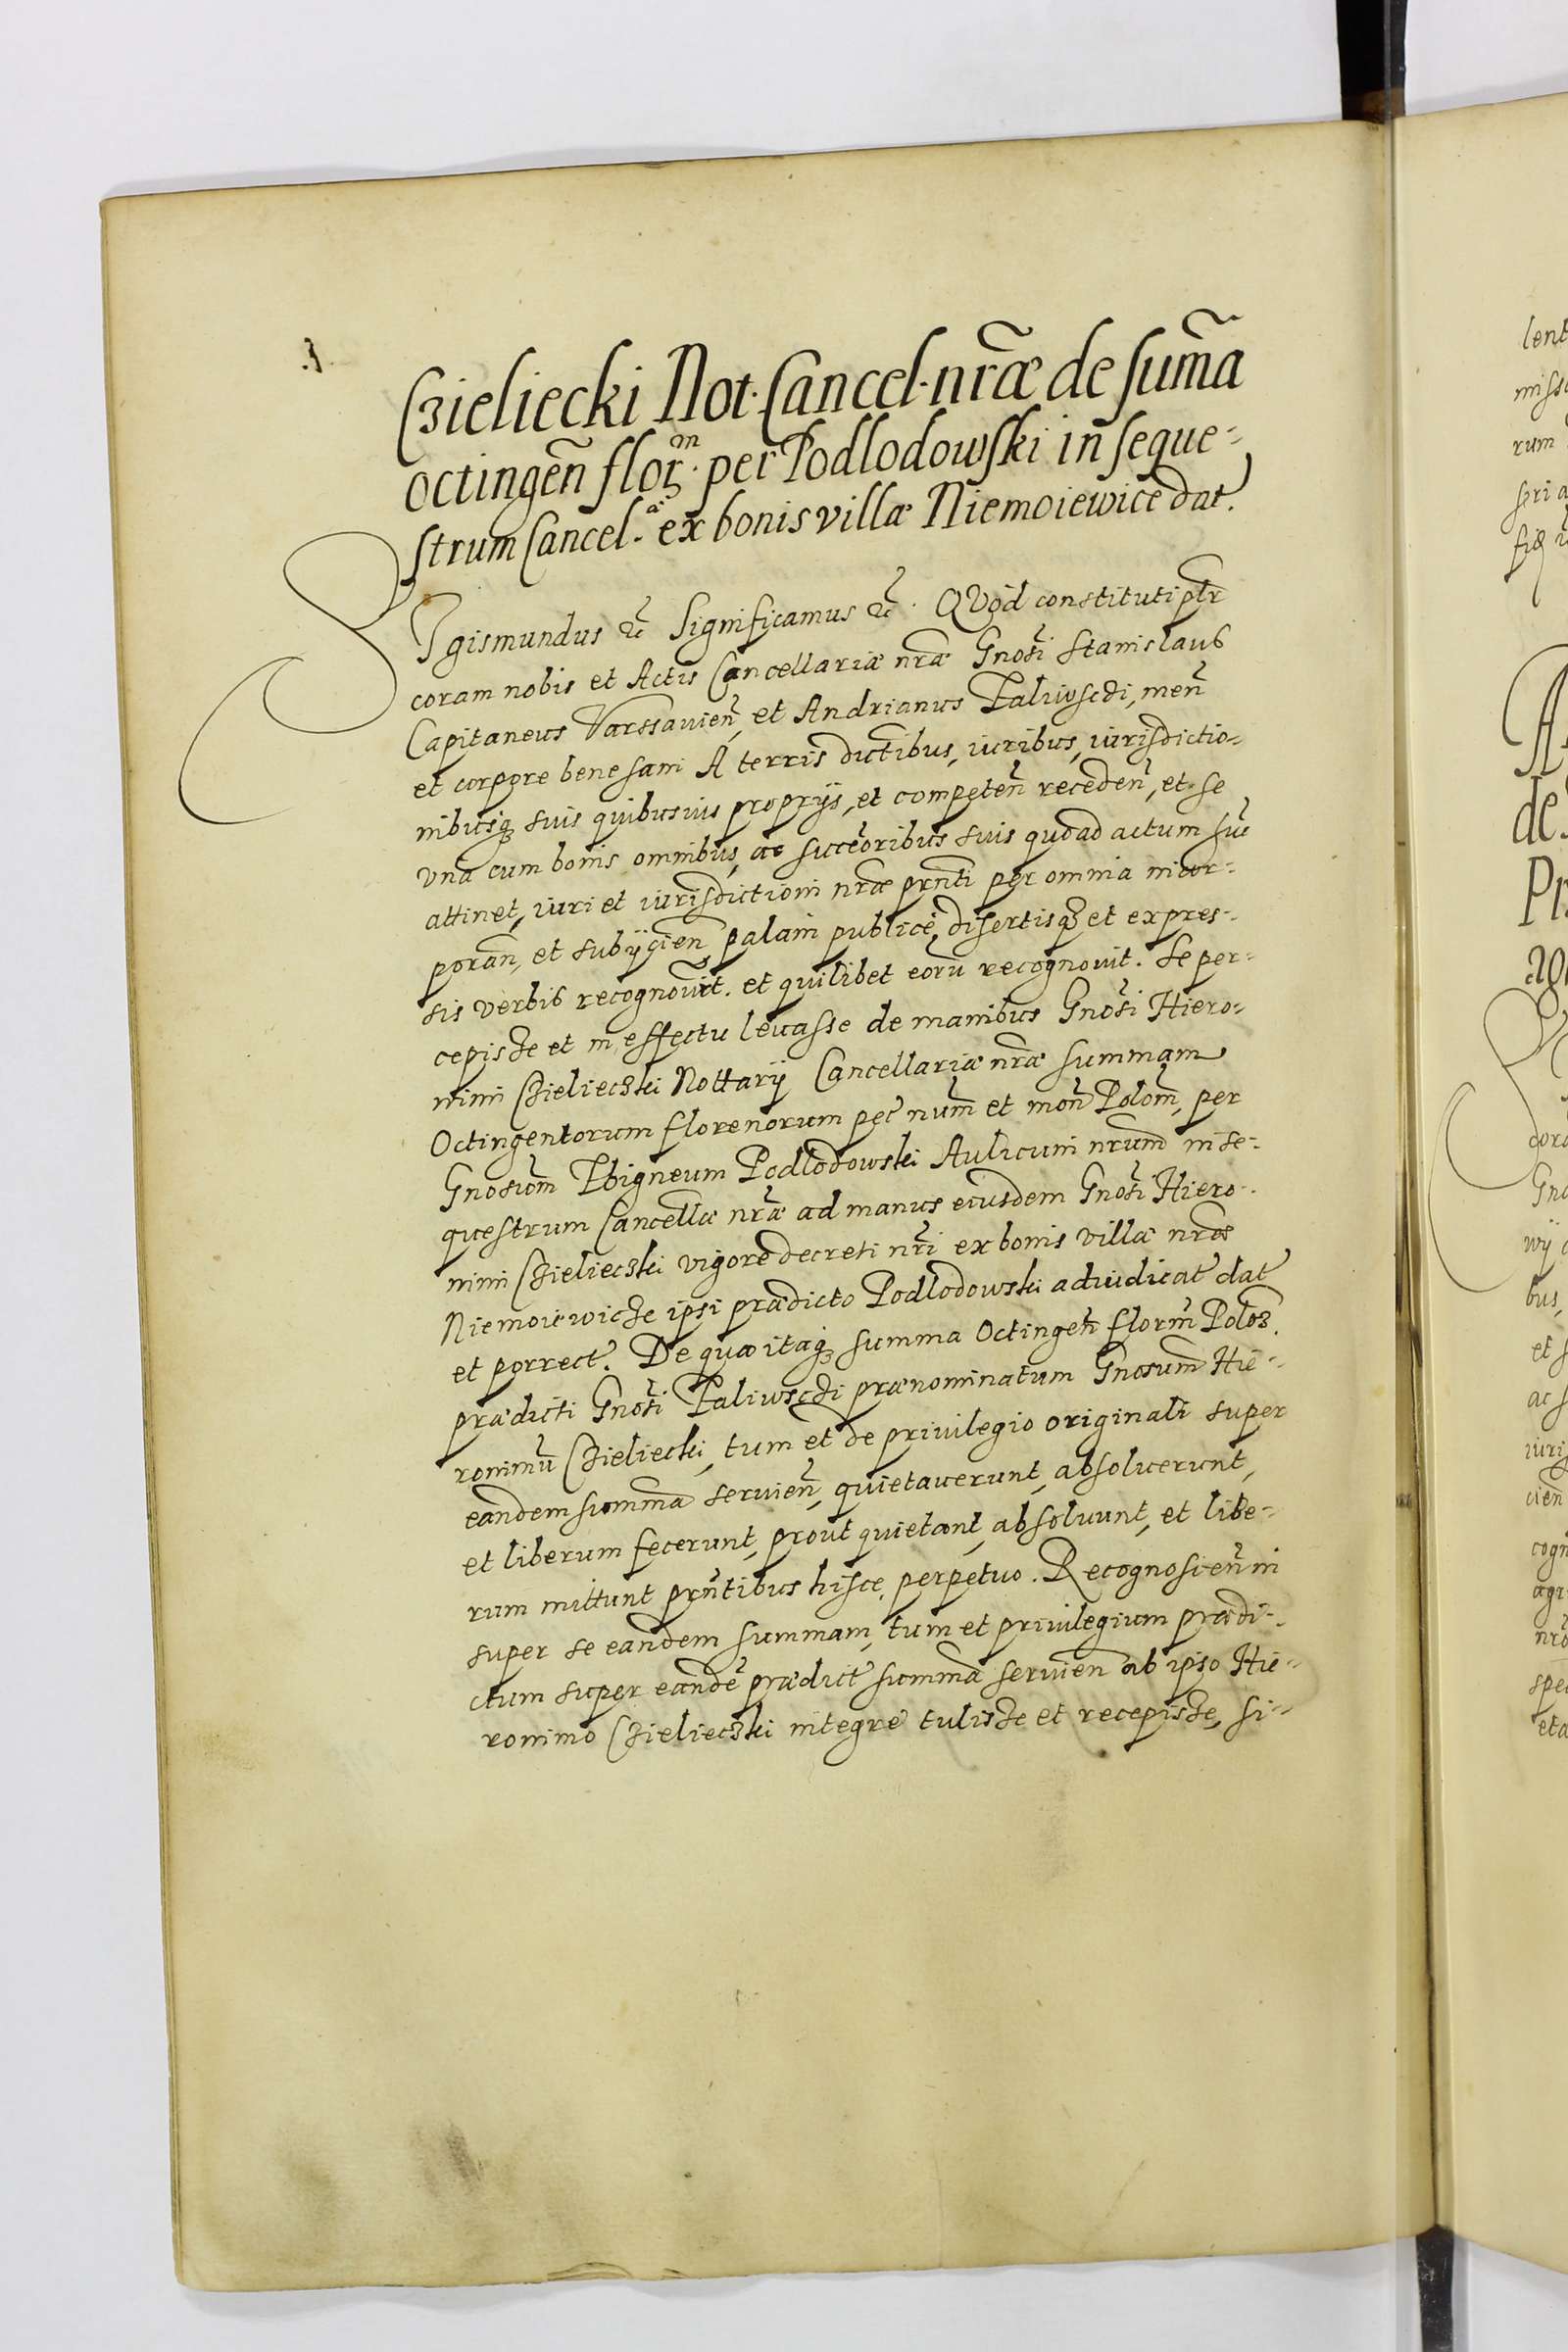 Czieliecki Not. Cancel. nrãæ de sum̃a
octingeñ florm̃. per Podlodowski in seque-
strum Cancel.a ex bonis villæ Niemoiewice dat.
SIgismundus &c̃ Significamus &c̃. QVod constituti pltr̃
coram nobis et Actis Cancellariæ nrãæ Gnosĩ Stanislaus
Capitaneus Varssavieñ, et Andrianus Paliwsczi, meñ
et corpore bene sani A terris dictĩbus, iuribus, iurisdictio-
nibusq̃ suis quibusuis proprijs, et competeñ recedeñ, et se
vna cum bonis omnibus, ac succẽoribus suis quoad actum huc̃
attinet, iuri et iurisdictioni nrãæ prñti per omnia incor-
porañ, et subijcieñ palam publicè, disertisq̃ et expres-
sis verbis recognouẽrt. et quilibet eorũ recognouit. Se per-
cepisze et in effectu leuasse de manibus Gnosĩ Hiero-
nimi Czielieczki Nottarij Cancellariæ nrãæ summam
Octingentorum florenorum pec̃ num̃ et moñ Polom̃, per
Gnosum̃ Sbigneum Podlodowski Aulicum nrum̃ in se-
questrum Cancellæ nrãæ ad manus eiusdem Gnosĩ Hiero-
nimi Czielieczki vigore decreti nrĩ ex bonis villæ nrãæ
Niemoiewicze ipsi prædicto Podlodowski adiudicat̃ dat̃
et porrect̃. De qua itaq̃ summa Octingeñ florm̃ Poloz.
prædicti Gnosĩ Paliwsczi prænominatum Gnosum̃ Hie-
ronimũ Czieliecki, tum et de priuilegio originali super
eandem summã seruieñ, quietauerunt, absoluerunt,
et liberum fecerunt, prout quietant, absoluunt, et libe-
rum mittunt prñtibus hisce, perpetuo. Recognosceñ in
super se eandem summam, tum et priuilegium prædi-
ctum super eandẽ prædict̃ summã seruieñ ab ipso Hie-
ronimo Czielieczki integrè tulisze et recepisze, si-